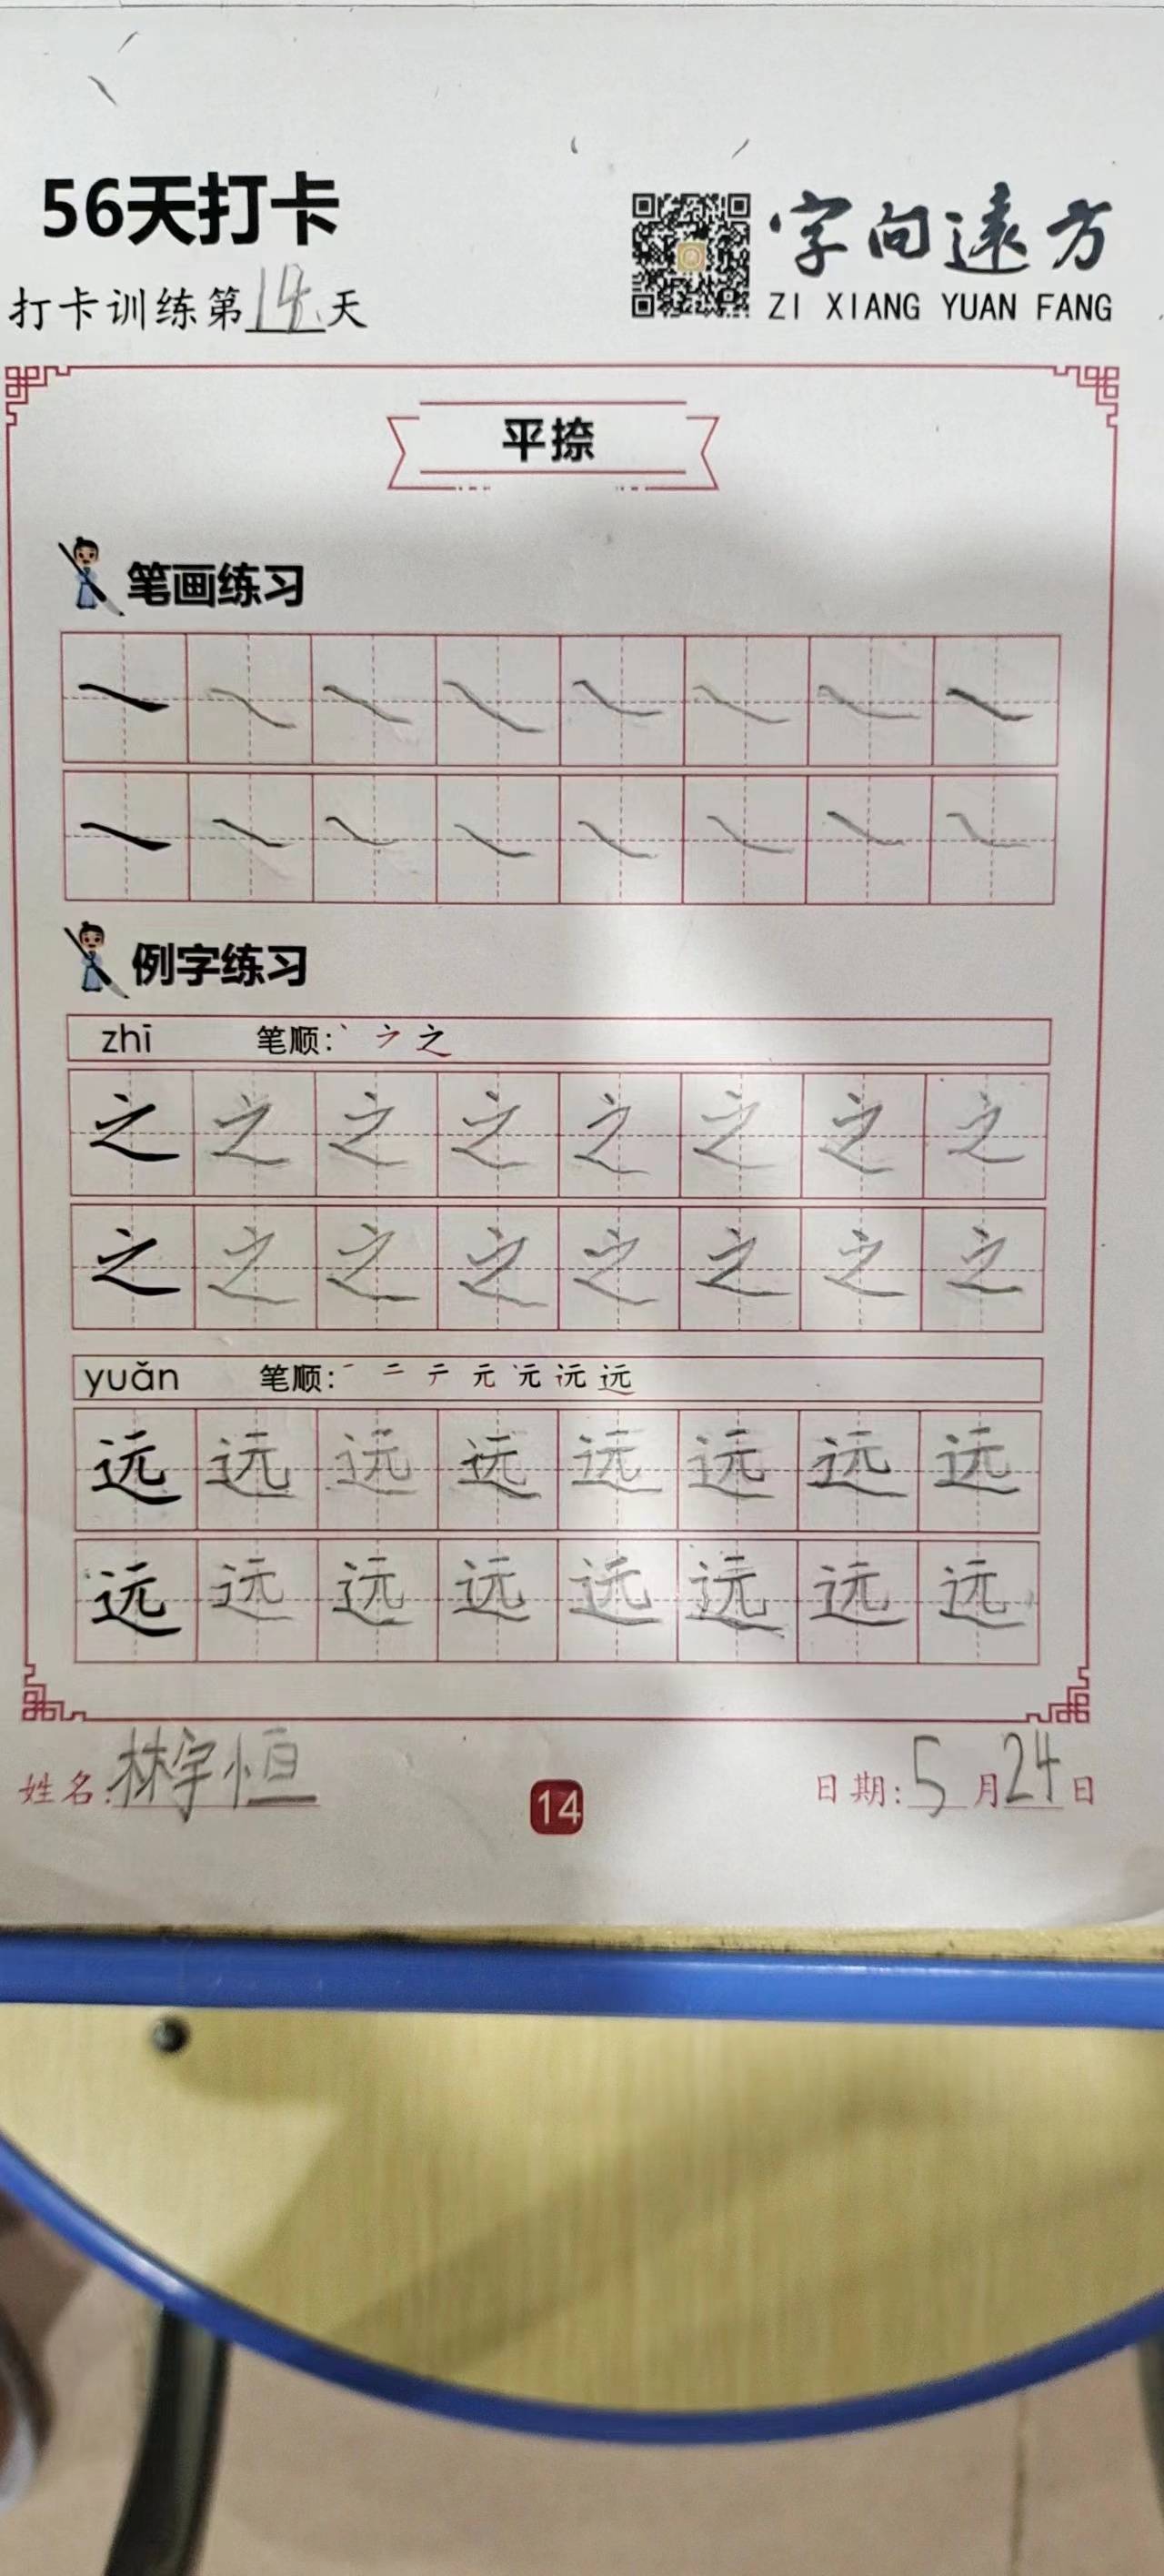 56天打卡
字向遠方
ZI XIANG YUAN FANG
打卡训练第14天
平捺
笔画练习
㇏ ㇏ ㇏ ㇏ ㇏ ㇏ ㇏ ㇏
㇏ ㇏ ㇏ ㇏ ㇏ ㇏ ㇏ ㇏
例字练习
zhī 笔顺: 丶 ㇇ 之
之 之 之 之 之 之 之 之
之 之 之 之 之 之 之 之
yuǎn 笔顺: 一 二 テ 元 元 远 远
远 远 远 远 远 远 远 远
远 远 远 远 远 远 远 远
姓名:林宇恒
14
日期:5月24日